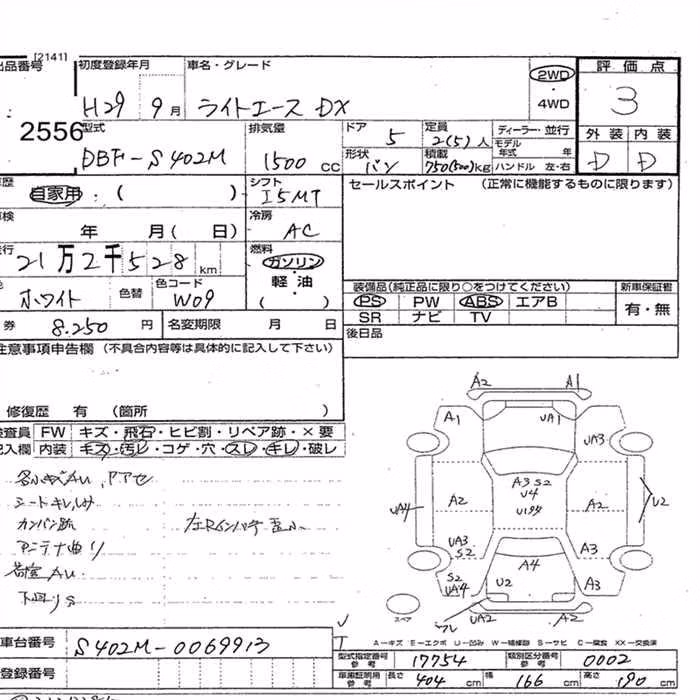 [2141]
出品番号 初度登録年月 車名・グレード 2WD・4WD 評価点
2556 H29 9月 ライトエース DX 3
型式 排気量 ドア 5 定員 2(5)人 ディーラー・並行 外装 内装
DBF-S402M 1500cc 形状 バン 積載 750(500)kg モデル年式 年 ハンドル 左・右 D D
歴 自家用・( ) シフト I5MT セールスポイント (正常に機能するものに限ります)
車検 年 月( 日) 冷房 AC
走行 21万2千528km 燃料 ガソリン・軽油( )
色 ホワイト 色替 色コード W09
装備品(純正品に限り○をつけてください) 新車保証書
PS PW ABS エアB 有・無
SR ナビ TV
券 8.250円 名変期限 月 日 後日品
注意事項申告欄 (不具合内容等は具体的に記入して下さい)
修復歴 有 (箇所 )
検査員 FW キズ・飛石・ヒビ割・リペア跡・×要
記入欄 内装 キズ・汚レ・コゲ・穴・スレ・キレ・破レ
各小キズAU、
シートキレ、
カンバン跡
アンテナ曲り
AU
下回りS
A2 A1
A1 UA1 UA3
A3 S2
U4
A2 A2
UA4 U2
UA3
S2 A3
A4
S2
UA4 U2 A3
スペア UA2 A2
A-キズ E-エクボ U-凹み W-補修跡 S-サビ C-腐食 XX-交換済
車台番号 S402M-0069913
型式指定番号 参考 17754 類別区分番号 参考 0002
登録番号 車庫証明用 参考 長さ 404cm 幅 166cm 高さ 190cm